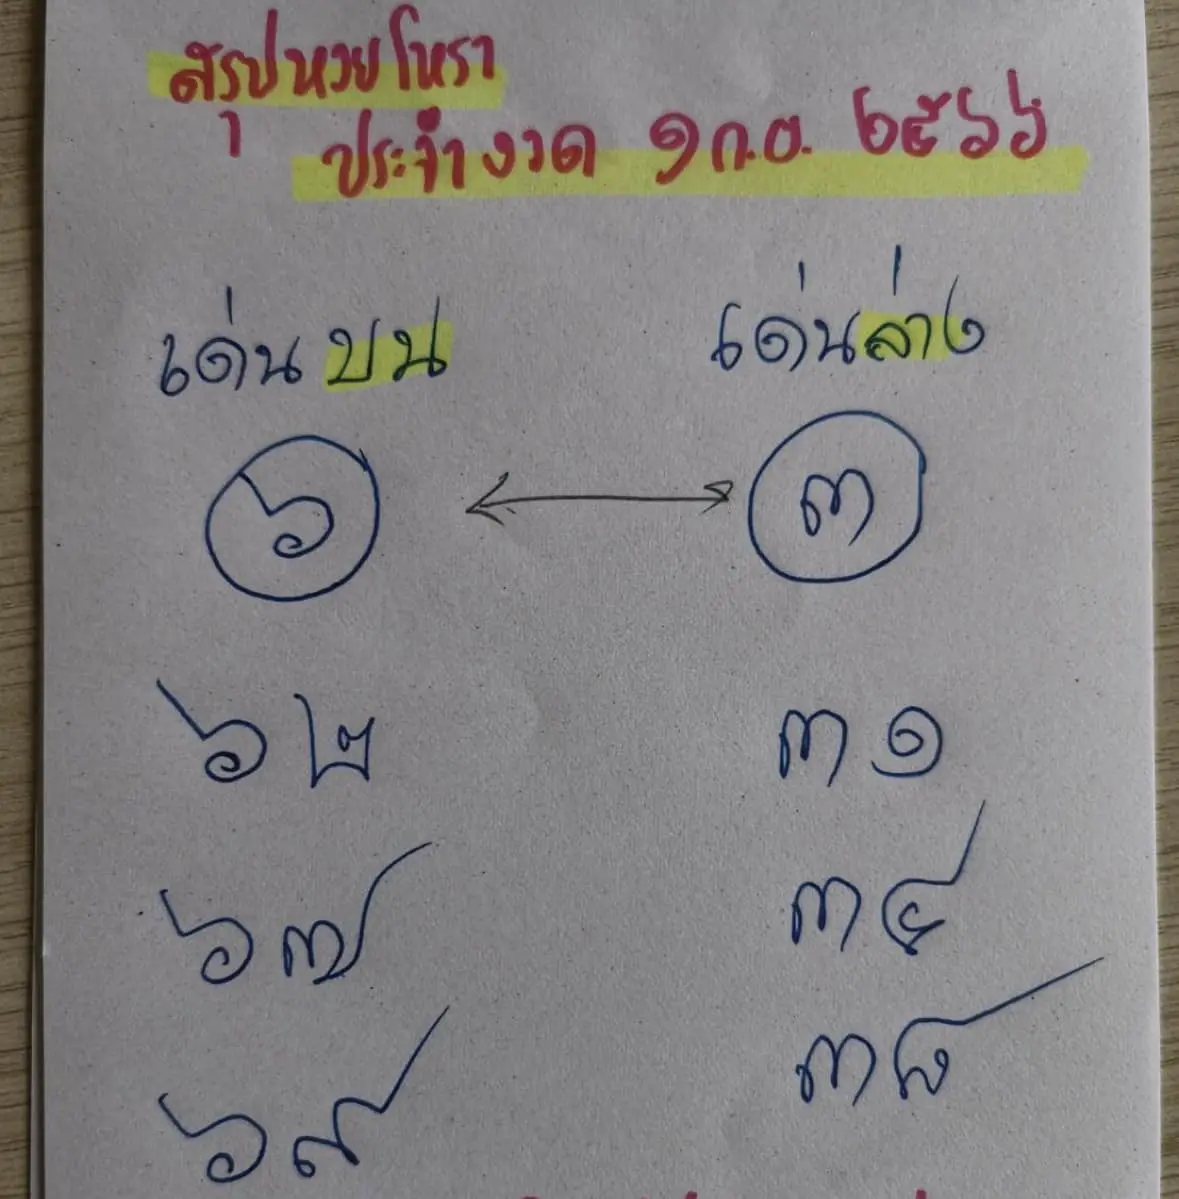 สรุปหวยโหรา
ประจำงวด ๑ ก.ย. ๒๕๖๖
เด่นบน เด่นล่าง
๖ ๓
๖๒ ๓๑
๖๗ ๓๔
๖๙ ๓๘